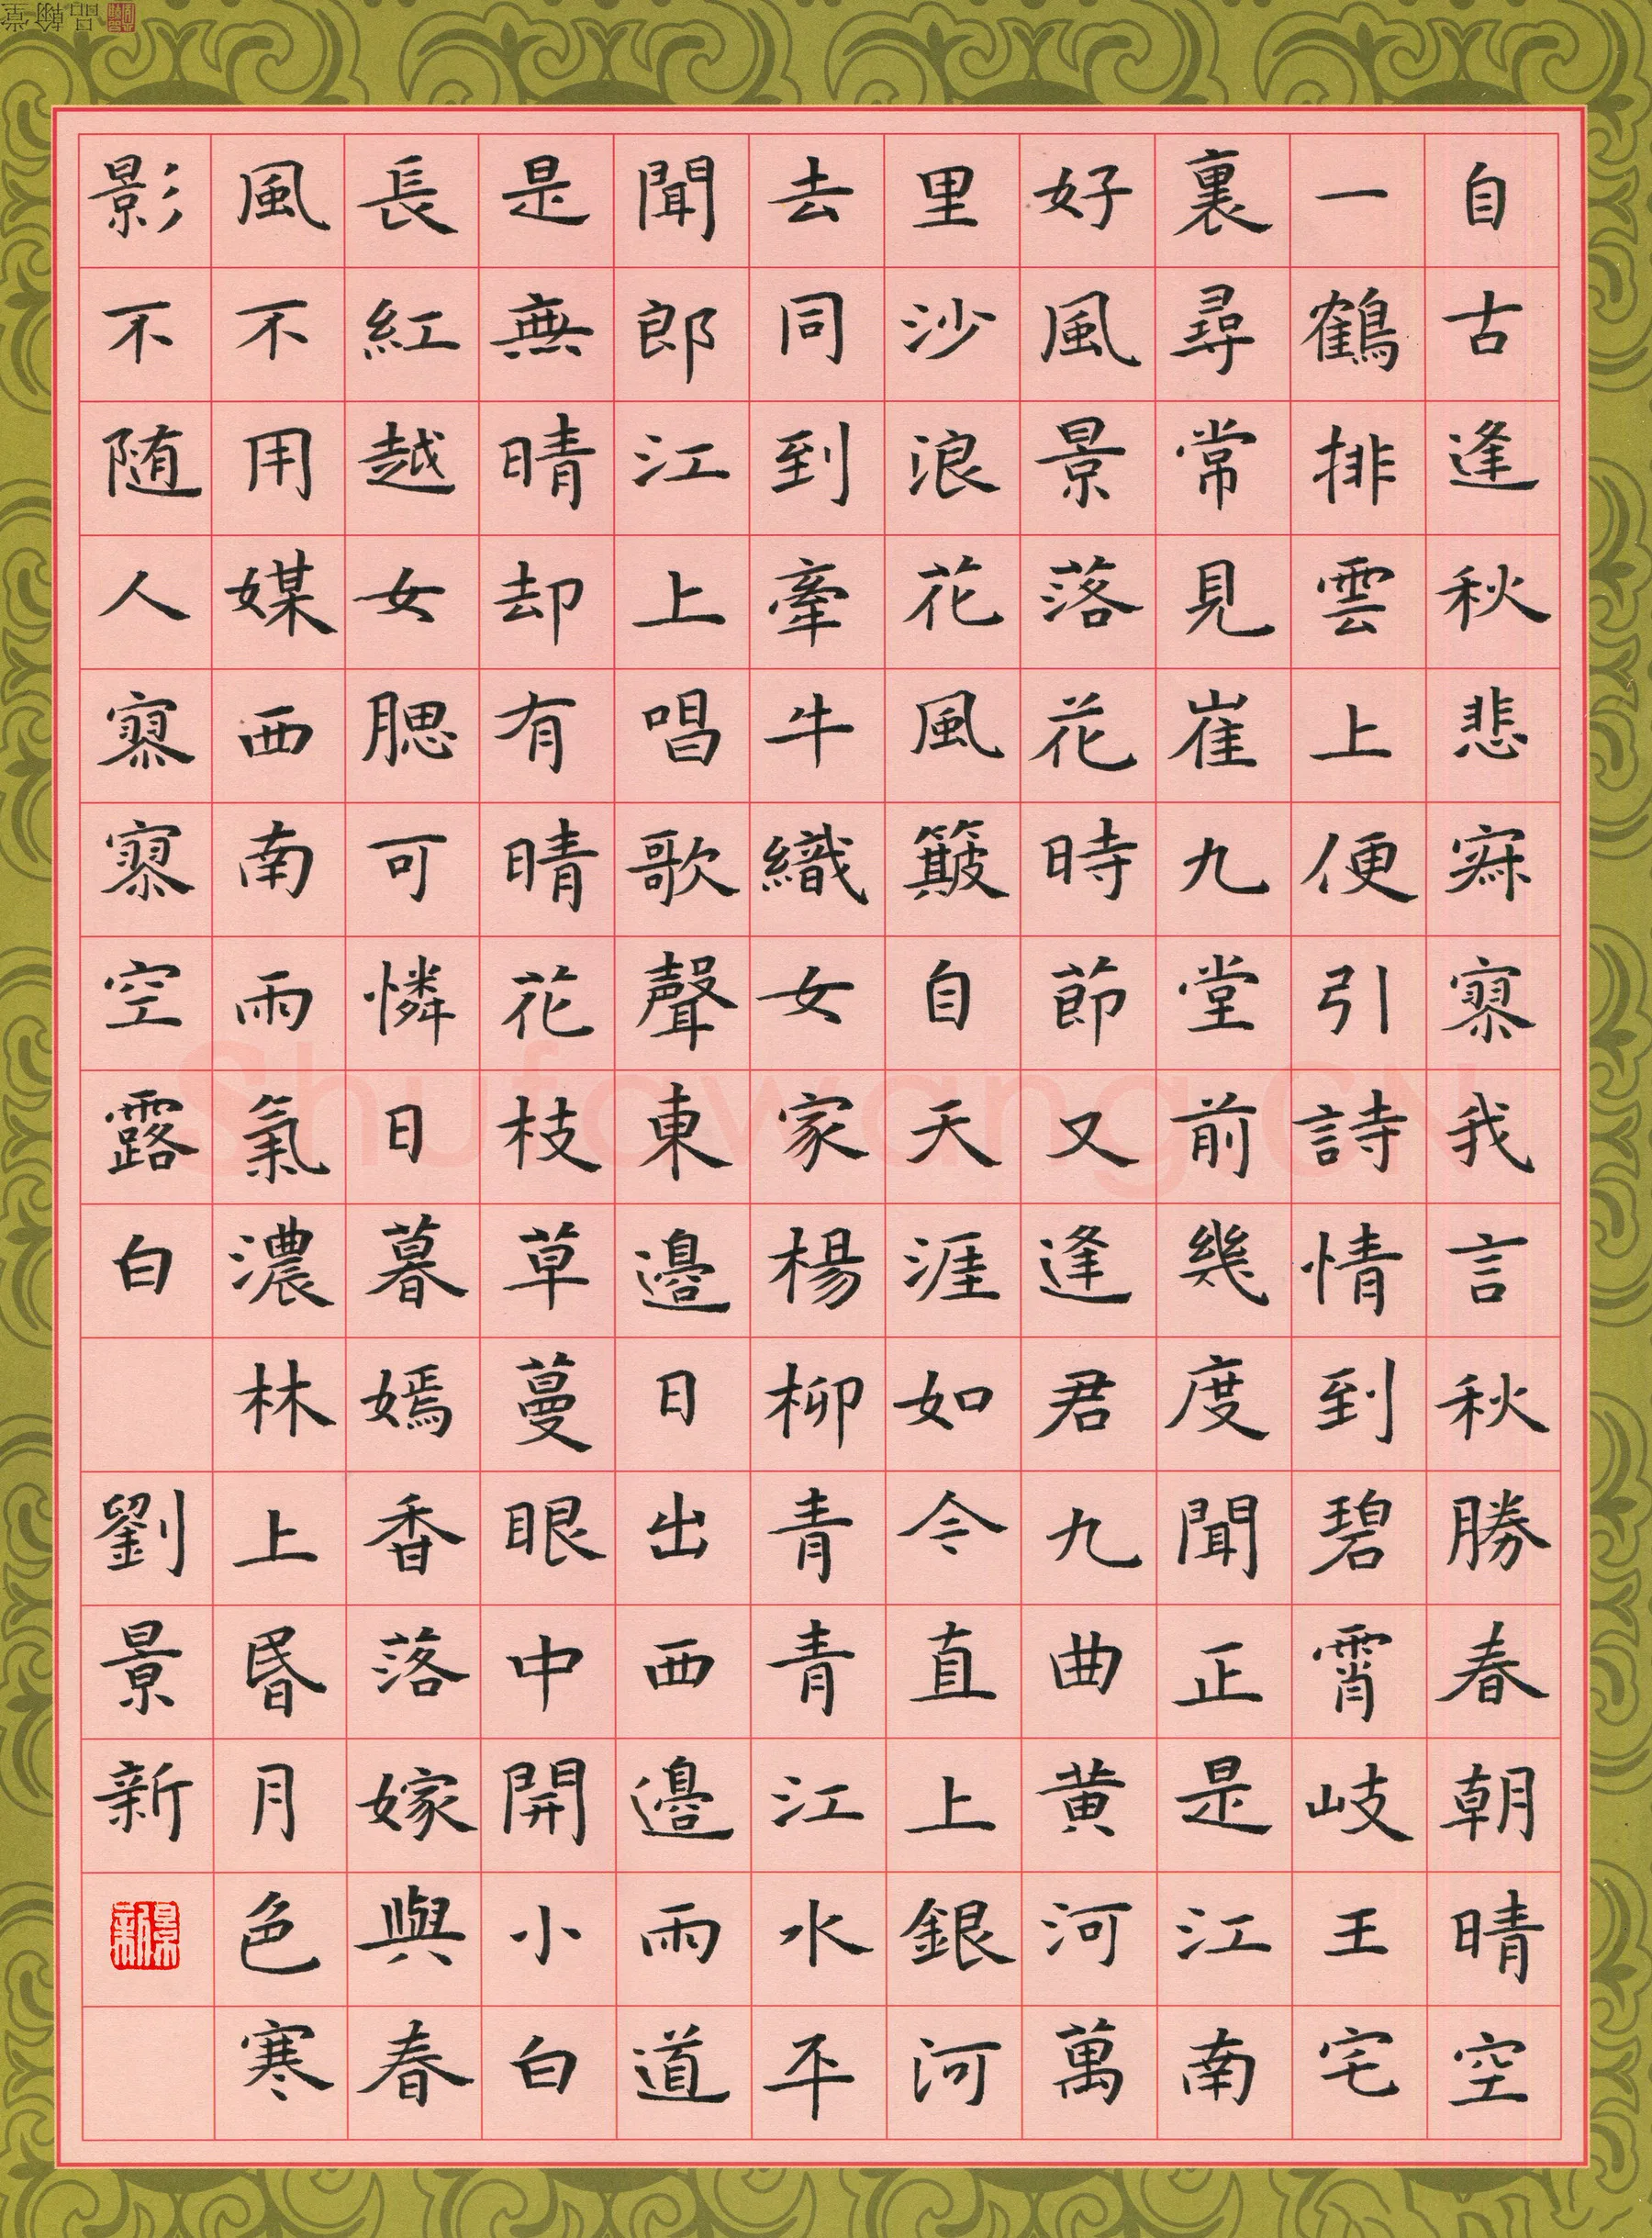 自古逢秋悲寂寥我言秋勝春朝晴空
一鶴排雲上便引詩情到碧霄岐王宅
裏尋常見崔九堂前幾度聞正是江南
好風景落花時節又逢君九曲黃河萬
里沙浪花風簸自天涯如今直上銀河
去同到牽牛織女家楊柳青青江水平
聞郎江上唱歌聲東邊日出西邊雨道
是無晴却有晴花枝草蔓眼中開小白
長紅越女腮可憐日暮嫣香落嫁與春
風不用媒西南雨氣濃林上昏月色寒
影不随人寥寥空露白
劉景新
景新
品翰堂
Shufawang.CN